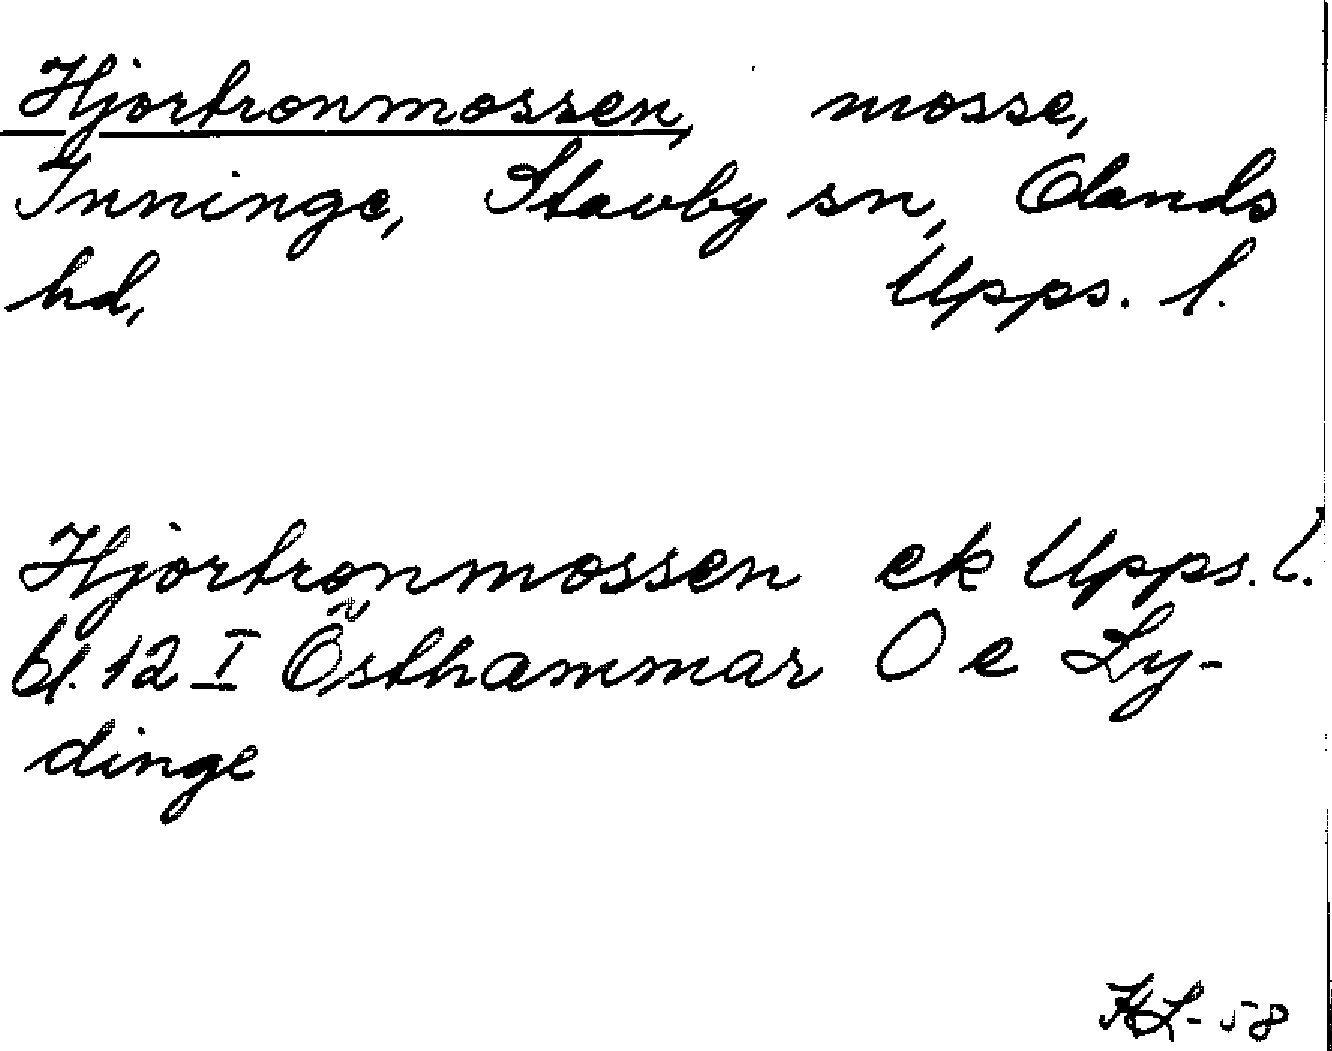 Hjortronmossen, mosse,
Inninge, Stavby sn, Olands
hd, Upps. l.
Hjortronmossen ek Upps. l.
bl. 12 I Östhammar O e Ly-
dinge
HL-58